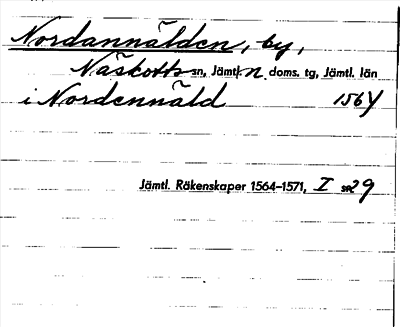 Nordannälden, by,
Näskotts sn, Jämtl. n doms. tg, Jämtl. län
i Nordennäld 1564
Jämtl. Räkenskaper 1564–1571, I s. 29